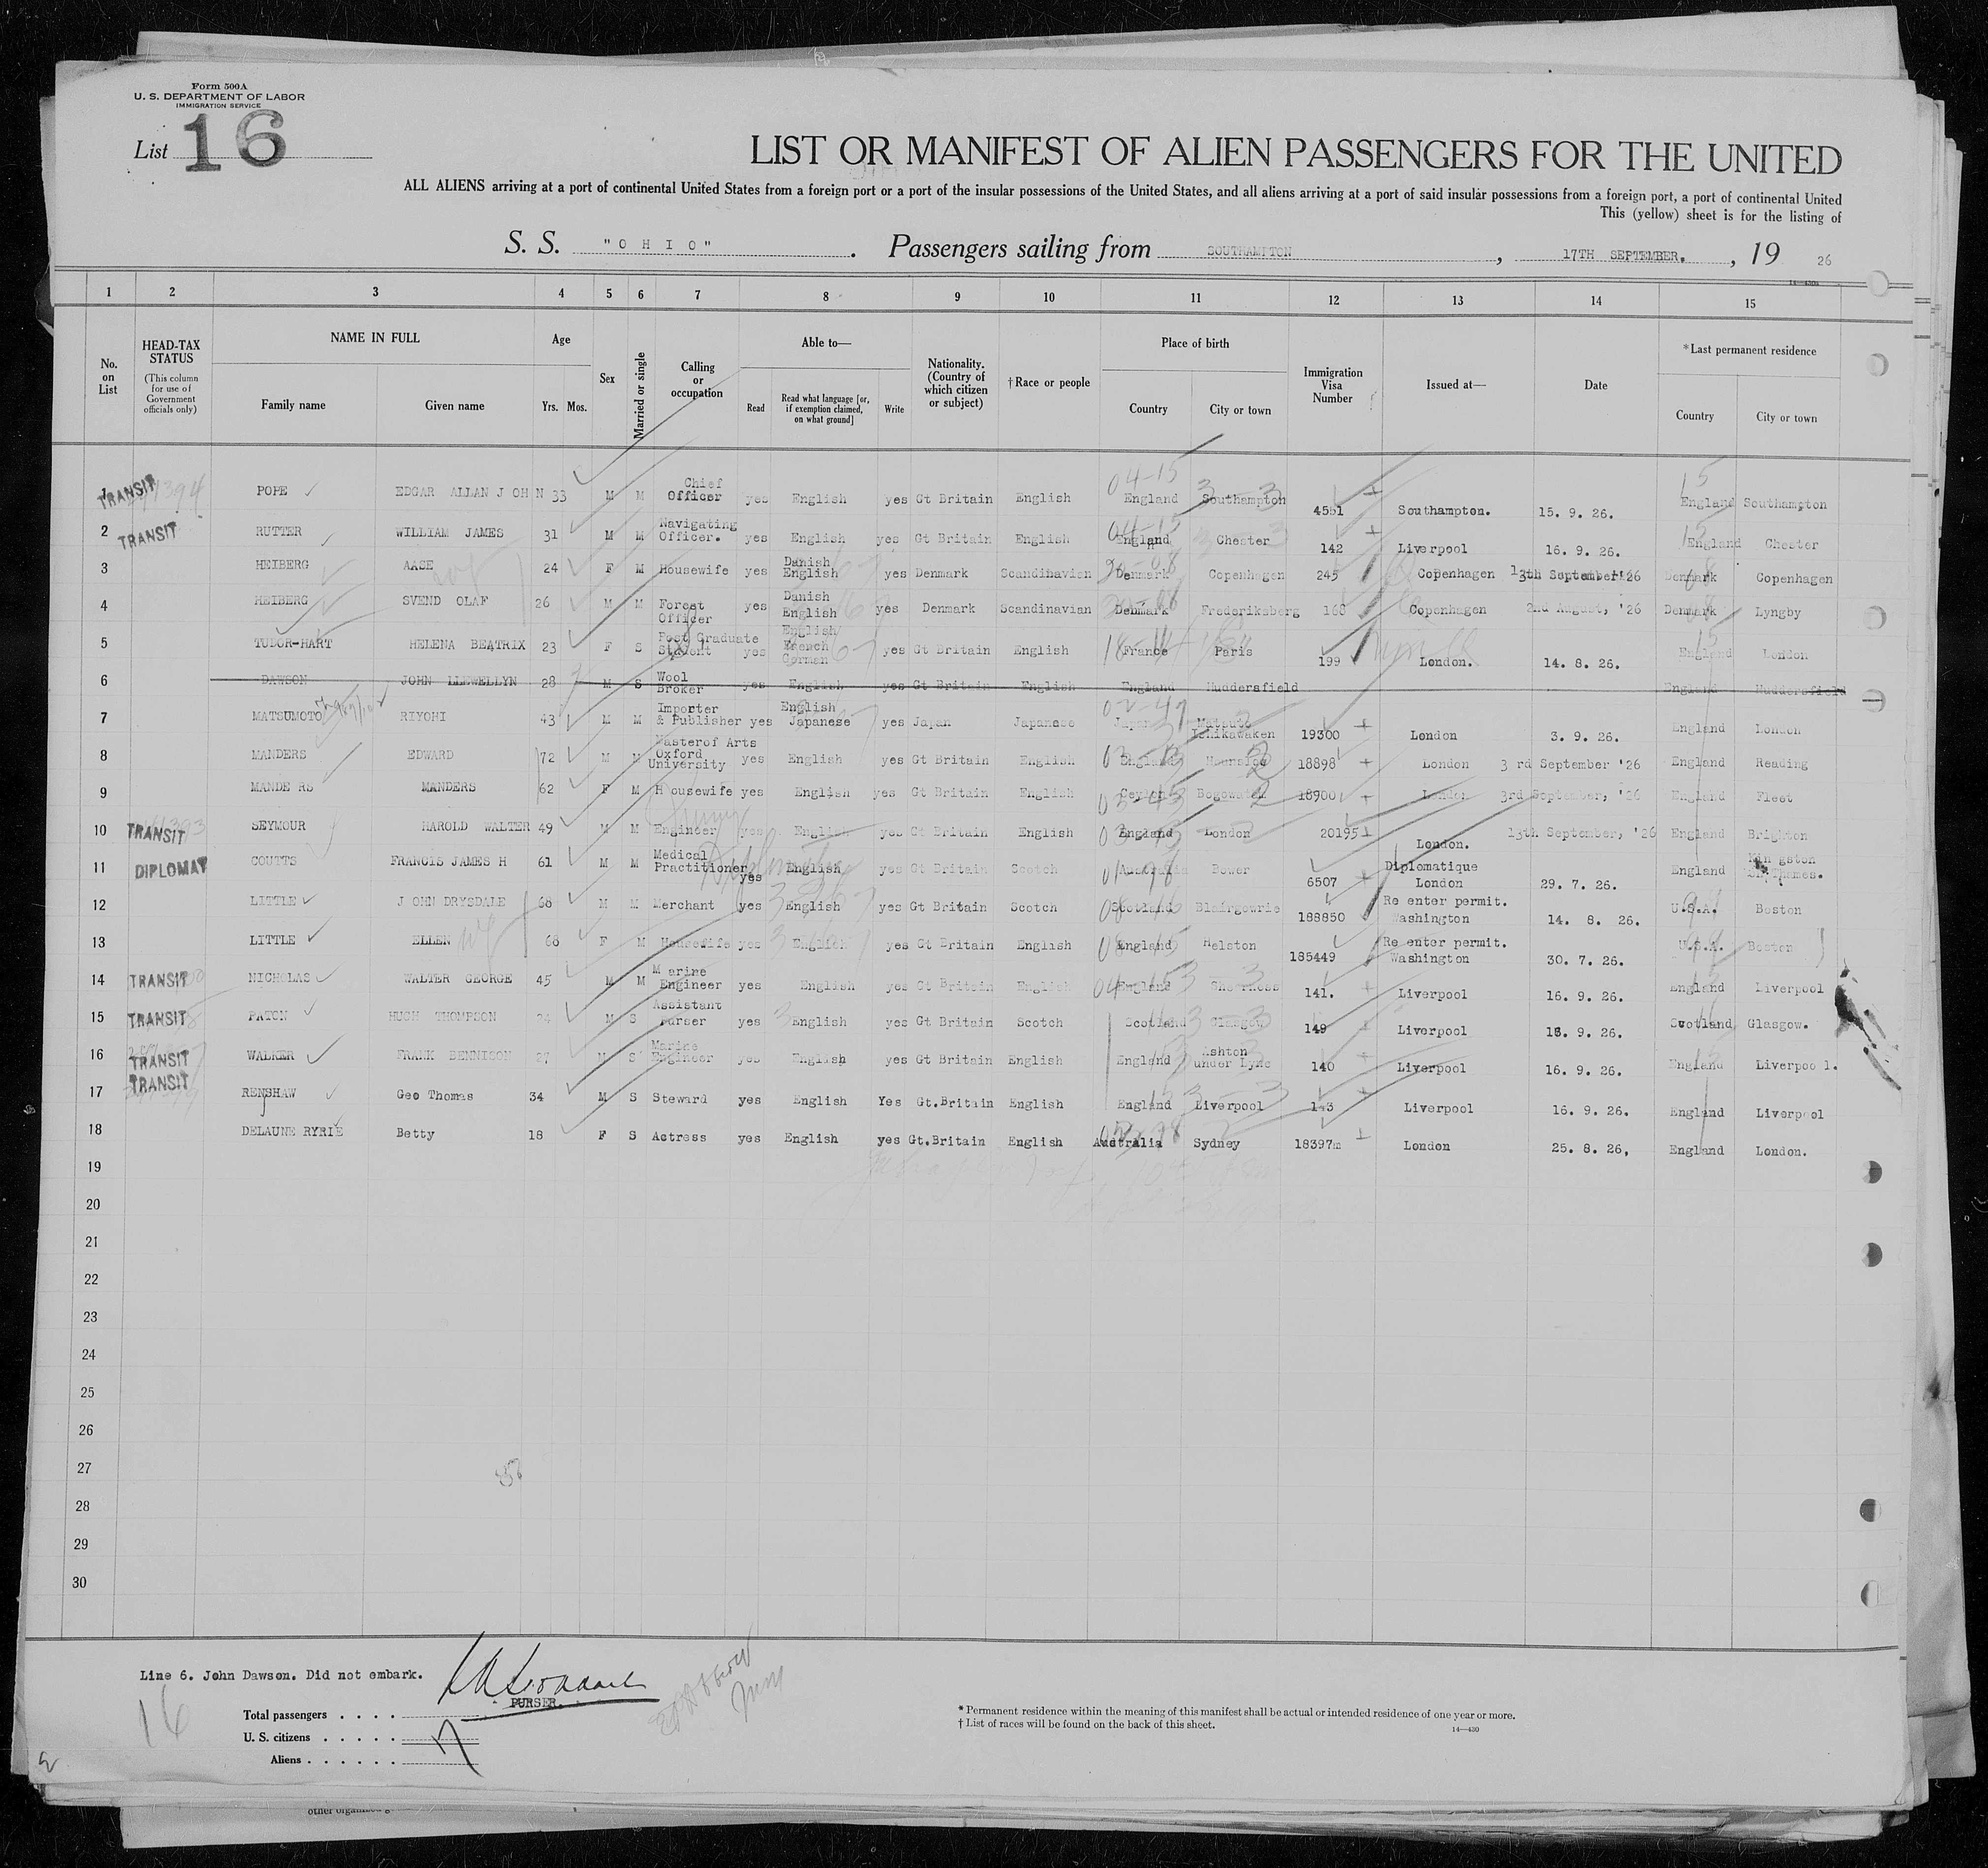 Form 500A
U. S. DEPARTMENT OF LABOR
IMMIGRATION SERVICE
List 16
LIST OR MANIFEST OF ALIEN PASSENGERS FOR THE UNITED
ALL ALIENS arriving at a port of continental United States from a foreign port or a port of the insular possessions of the United States, and all aliens arriving at a port of said insular possessions from a foreign port, a port of continental United
This (yellow) sheet is for the listing of
S. S. "O H I O". Passengers sailing from SOUTHAMPTON, 17TH SEPTEMBER., 19 26
1 2 3 4 5 6 7 8 9 10 11 12 13 14 15
No. on List
HEAD-TAX STATUS (This column for use of Government officials only)
NAME IN FULL
Family name Given name
Age Yrs. Mos.
Sex
Married or single
Calling or occupation
Able to—
Read Read what language [or, if exemption claimed, on what ground] Write
Nationality. (Country of which citizen or subject)
†Race or people
Place of birth
Country City or town
Immigration Visa Number
Issued at—
Date
*Last permanent residence
Country City or town
1 TRANSIT POPE EDGAR ALLAN J OH N 33 M M Chief Officer yes English yes Gt Britain English England Southampton 4551 Southampton. 15. 9. 26. England Southampton
2 TRANSIT RUTTER WILLIAM JAMES 31 M M Navigating Officer. yes English yes Gt Britain English England Chester 142 Liverpool 16. 9. 26. England Chester
3 HEIBERG AASE 24 F M Housewife yes Danish English yes Denmark Scandinavian Denmark Copenhagen 245 Copenhagen 13th September '26 Denmark Copenhagen
4 HEIBERG SVEND OLAF 26 M M Forest Officer yes Danish English yes Denmark Scandinavian Denmark Frederiksberg 168 Copenhagen 2nd August, '26 Denmark Lyngby
5 TUDOR-HART HELENA BEATRIX 23 F S Post Graduate Student yes English French German yes Gt Britain English France Paris 199 London. 14. 8. 26. England London
6 DAWSON JOHN LLEWELLYN 28 M S Wool Broker yes English yes Gt Britain English England Huddersfield England Huddersfield
7 MATSUMOTO RIYOHI 43 M M Importer & Publisher yes English Japanese yes Japan Japanese Japan Matsuto Ishikawaken 19300 London 3. 9. 26. England London
8 MANDERS EDWARD 72 M M Masterof Arts Oxford University yes English yes Gt Britain English England Hounslow 18898 London 3 rd September '26 England Reading
9 MANDE RS MANDERS 62 F M H ousewife yes English yes Gt Britain English Ceylon 18900 London 3rd September, '26 England Fleet
10 TRANSIT SEYMOUR HAROLD WALTER 49 M M Engineer yes English yes Gt Britain English England London 20195 London. 13th September, '26 England Brighton
11 DIPLOMAT COUTTS FRANCIS JAMES H 61 M M Medical Practitioner yes English yes Gt Britain Scotch Australia Bower 6507 Diplomatique London 29. 7. 26. England Kingston
12 LITTLE J OHN DRYSDALE 68 M M Merchant yes English yes Gt Britain Scotch Scotland Blairgowrie 188850 Re enter permit. Washington 14. 8. 26. U.S.A. Boston
13 LITTLE ELLEN 68 F M Housewife yes English yes Gt Britain English England Helston 185449 Re enter permit. Washington 30. 7. 26. U.S.A. Boston
14 TRANSIT NICHOLAS WALTER GEORGE 45 M M M arine Engineer yes English yes Gt Britain English England Sheerness 141. Liverpool 16. 9. 26. England Liverpool
15 TRANSIT PATON HUGH THOMPSON 24 M S Assistant Purser yes English yes Gt Britain Scotch Scotland Glasgow 149 Liverpool 16. 9. 26. Scotland Glasgow.
16 TRANSIT WALKER FRANK BENNISON 27 M S Marine Engineer yes English yes Gt Britain English England Ashton under Lyne 140 Liverpool 16. 9. 26. England Liverpoo l.
17 TRANSIT RENSHAW Geo Thomas 34 M S Steward yes English Yes Gt.Britain English England Liverpool 143 Liverpool 16. 9. 26. England Liverpool
18 DELAUNE RYRIE Betty 18 F S Actress yes English yes Gt.Britain English Australia Sydney 18397m London 25. 8. 26, England London.
19
20
21
22
23
24
25
26
27
28
29
30
Line 6. John Dawson. Did not embark.
PURSER.
16
Total passengers . . . .
U. S. citizens . . . . .
Aliens . . . . . .
17
* Permanent residence within the meaning of this manifest shall be actual or intended residence of one year or more.
† List of races will be found on the back of this sheet.
14—430